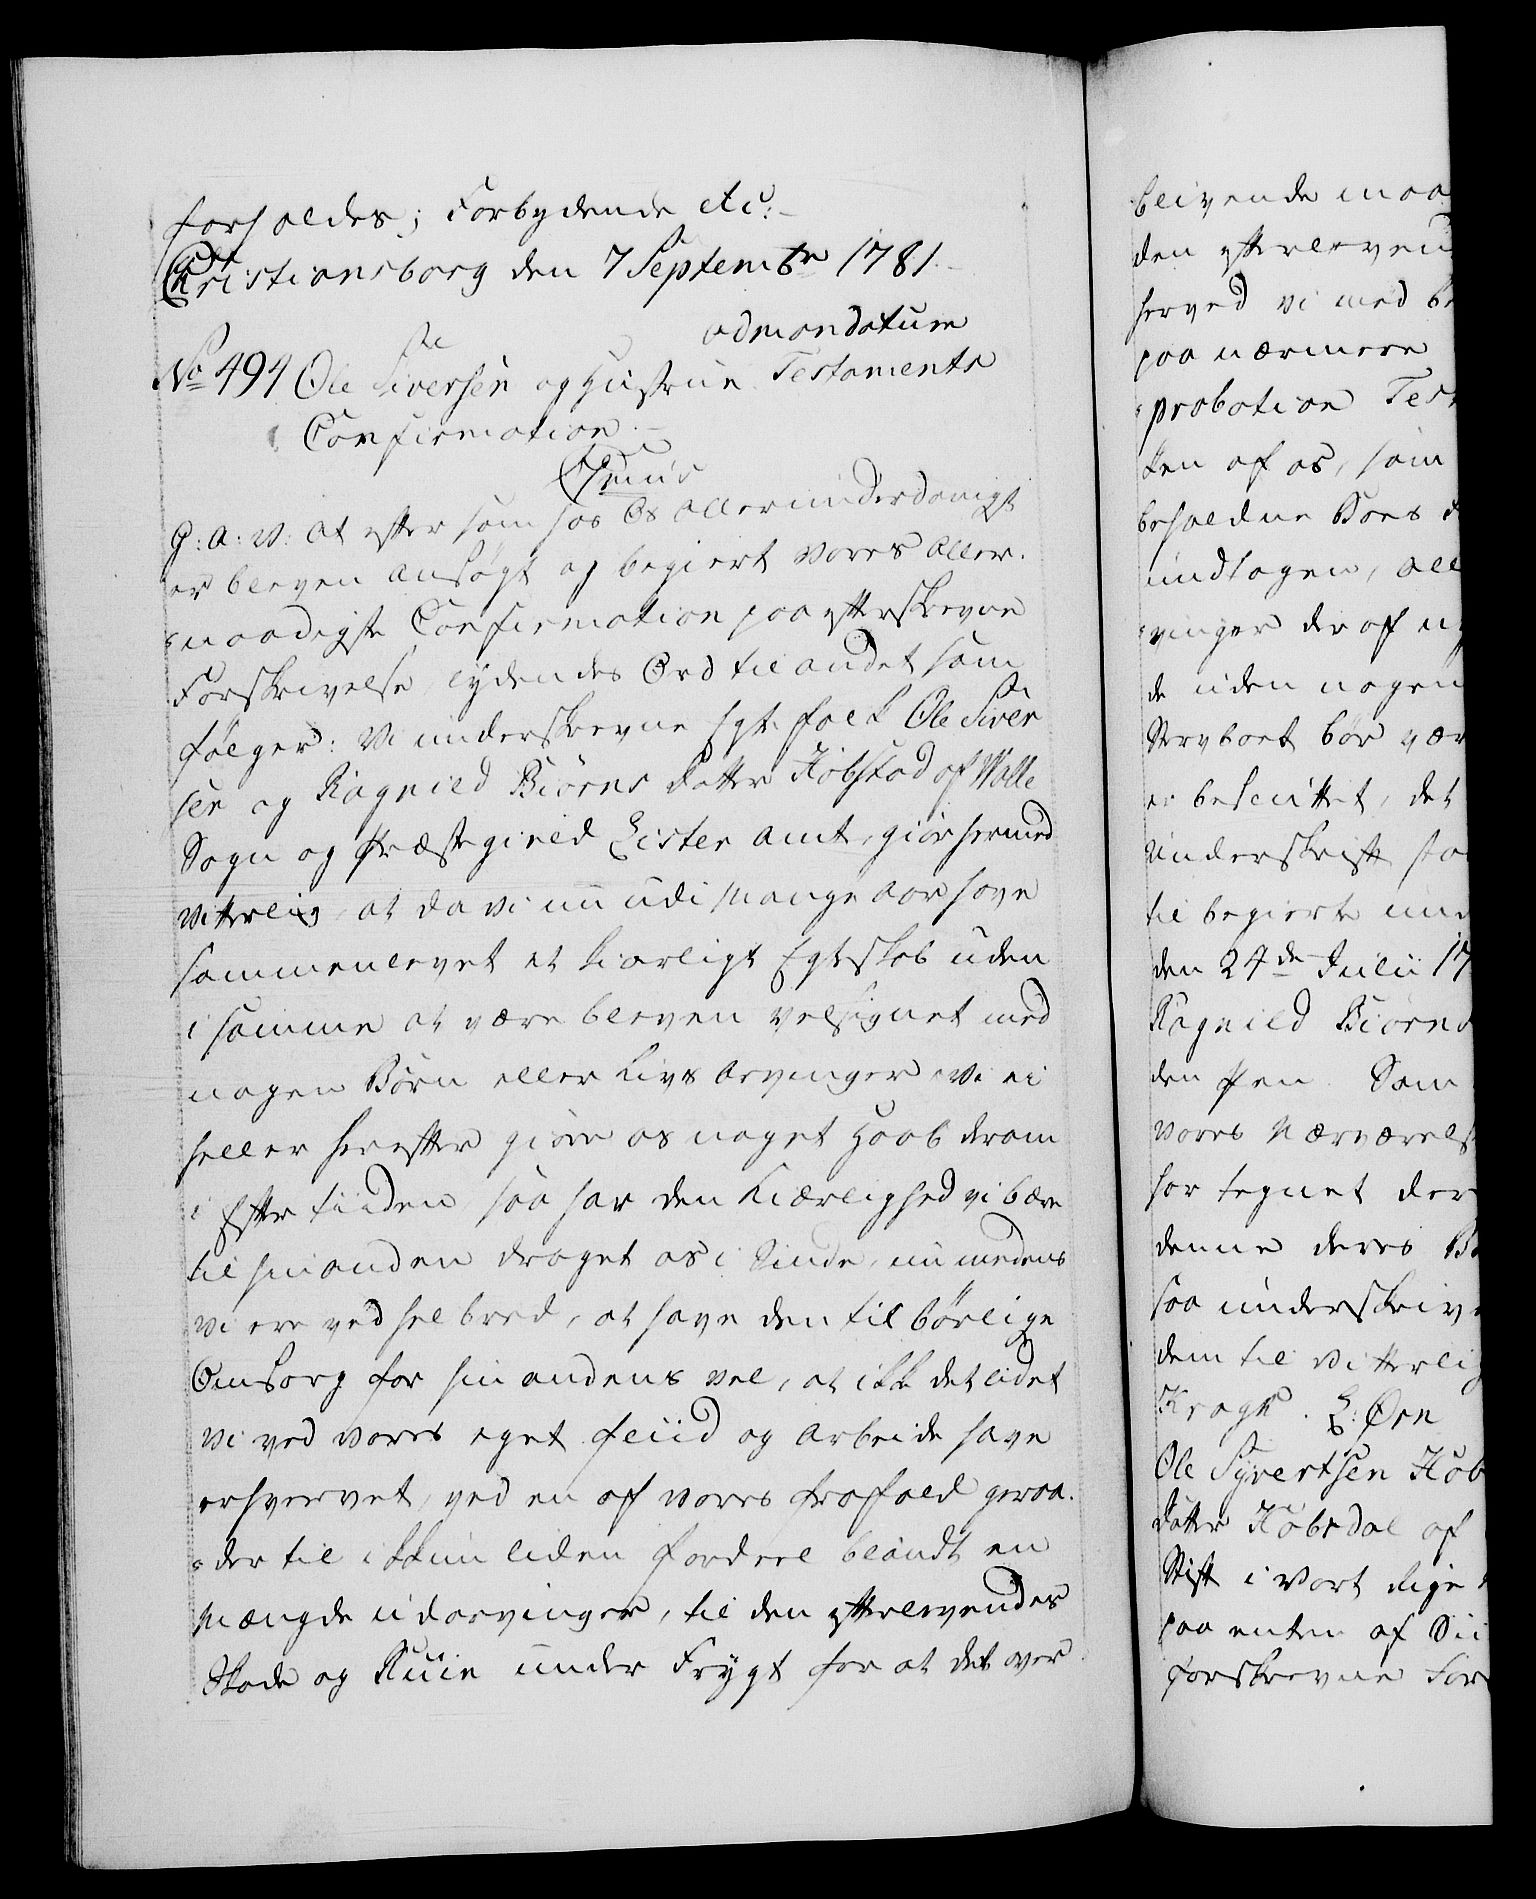 forholdes; Forbydende etc:
Christiansborg den 7 Septembr 1781.
ad mandatum
No 494 Ole Siversen og Hustrue Testaments
Confirmation.
Gratis
G: A: V: at efter som hos Os allerunderdanigst
er bleven ansøgt og begiert Vores Aller-
naadigste Confirmation paa efterskrevne
Forskrivelse, lydendes Ord til andet som
følger: Vi underskrevne Egtefolk Ole Siver
sen og Ragnild Biørns datter Høbstad af Walle
Sogn og Præstegield Lister amt, giør hermed
vitterlig, at da vi nu udi mange aar have
sammenlevet et kierligt Egteskab uden
i samme at være bleven velsignet med
nogen Børn eller Livs Arvinger, Vi ei
heller herefter giøre os noget Haab derom
i Eftertiiden, saa har den Kiærlighed vi bære
til hinanden draget os i Sinde, nu medens
vi ere ved helbred, at have den tilbørlige
Omsorg for hinandens vel, at ikke det lidet
vi ved vores eget Fliid og Arbeide have
erhvervet, ved en af vores frafald geraa-
der til ikkun liden fordeel blandt en
Mængde udarvinger, til den efterlevendes
Skade og Ruin under Frygt for at det over
blivende maa
den efterleven
herved vi med be
paa nærmere
probation Tes
ten af os, som
beholdne Boes
undtagen, all
vinger deraf
de uden nogen
Sterboet bør vær
er besluttet, det
Underskrift
til begierte
den 24de Julii 17
Ragnild Biørns
den Pen. Som
Vores Nærværels
har tegnet der
denne deres
saa underskriv
dem til Vitterli
Kragh. L: Orn
Ole Syvertsen Høb
datter Høbsdal af
Stift i Vort Rige
paa enten af Sii
forskrevne For